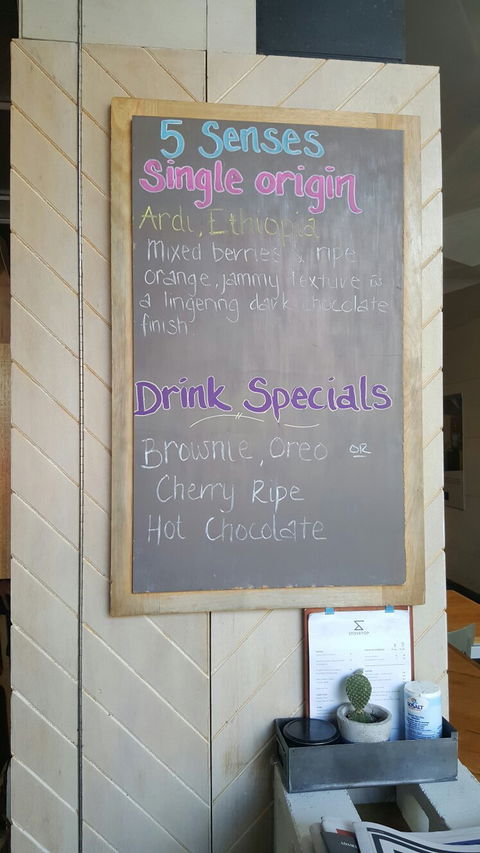 5 Senses
Single origin
Ardi, Ethiopia
Mixed berries & ripe
orange, jammy texture &
a lingering dark chocolate
finish.
Drink Specials
Brownie, Oreo OR
Cherry Ripe
Hot Chocolate
STOVETOP